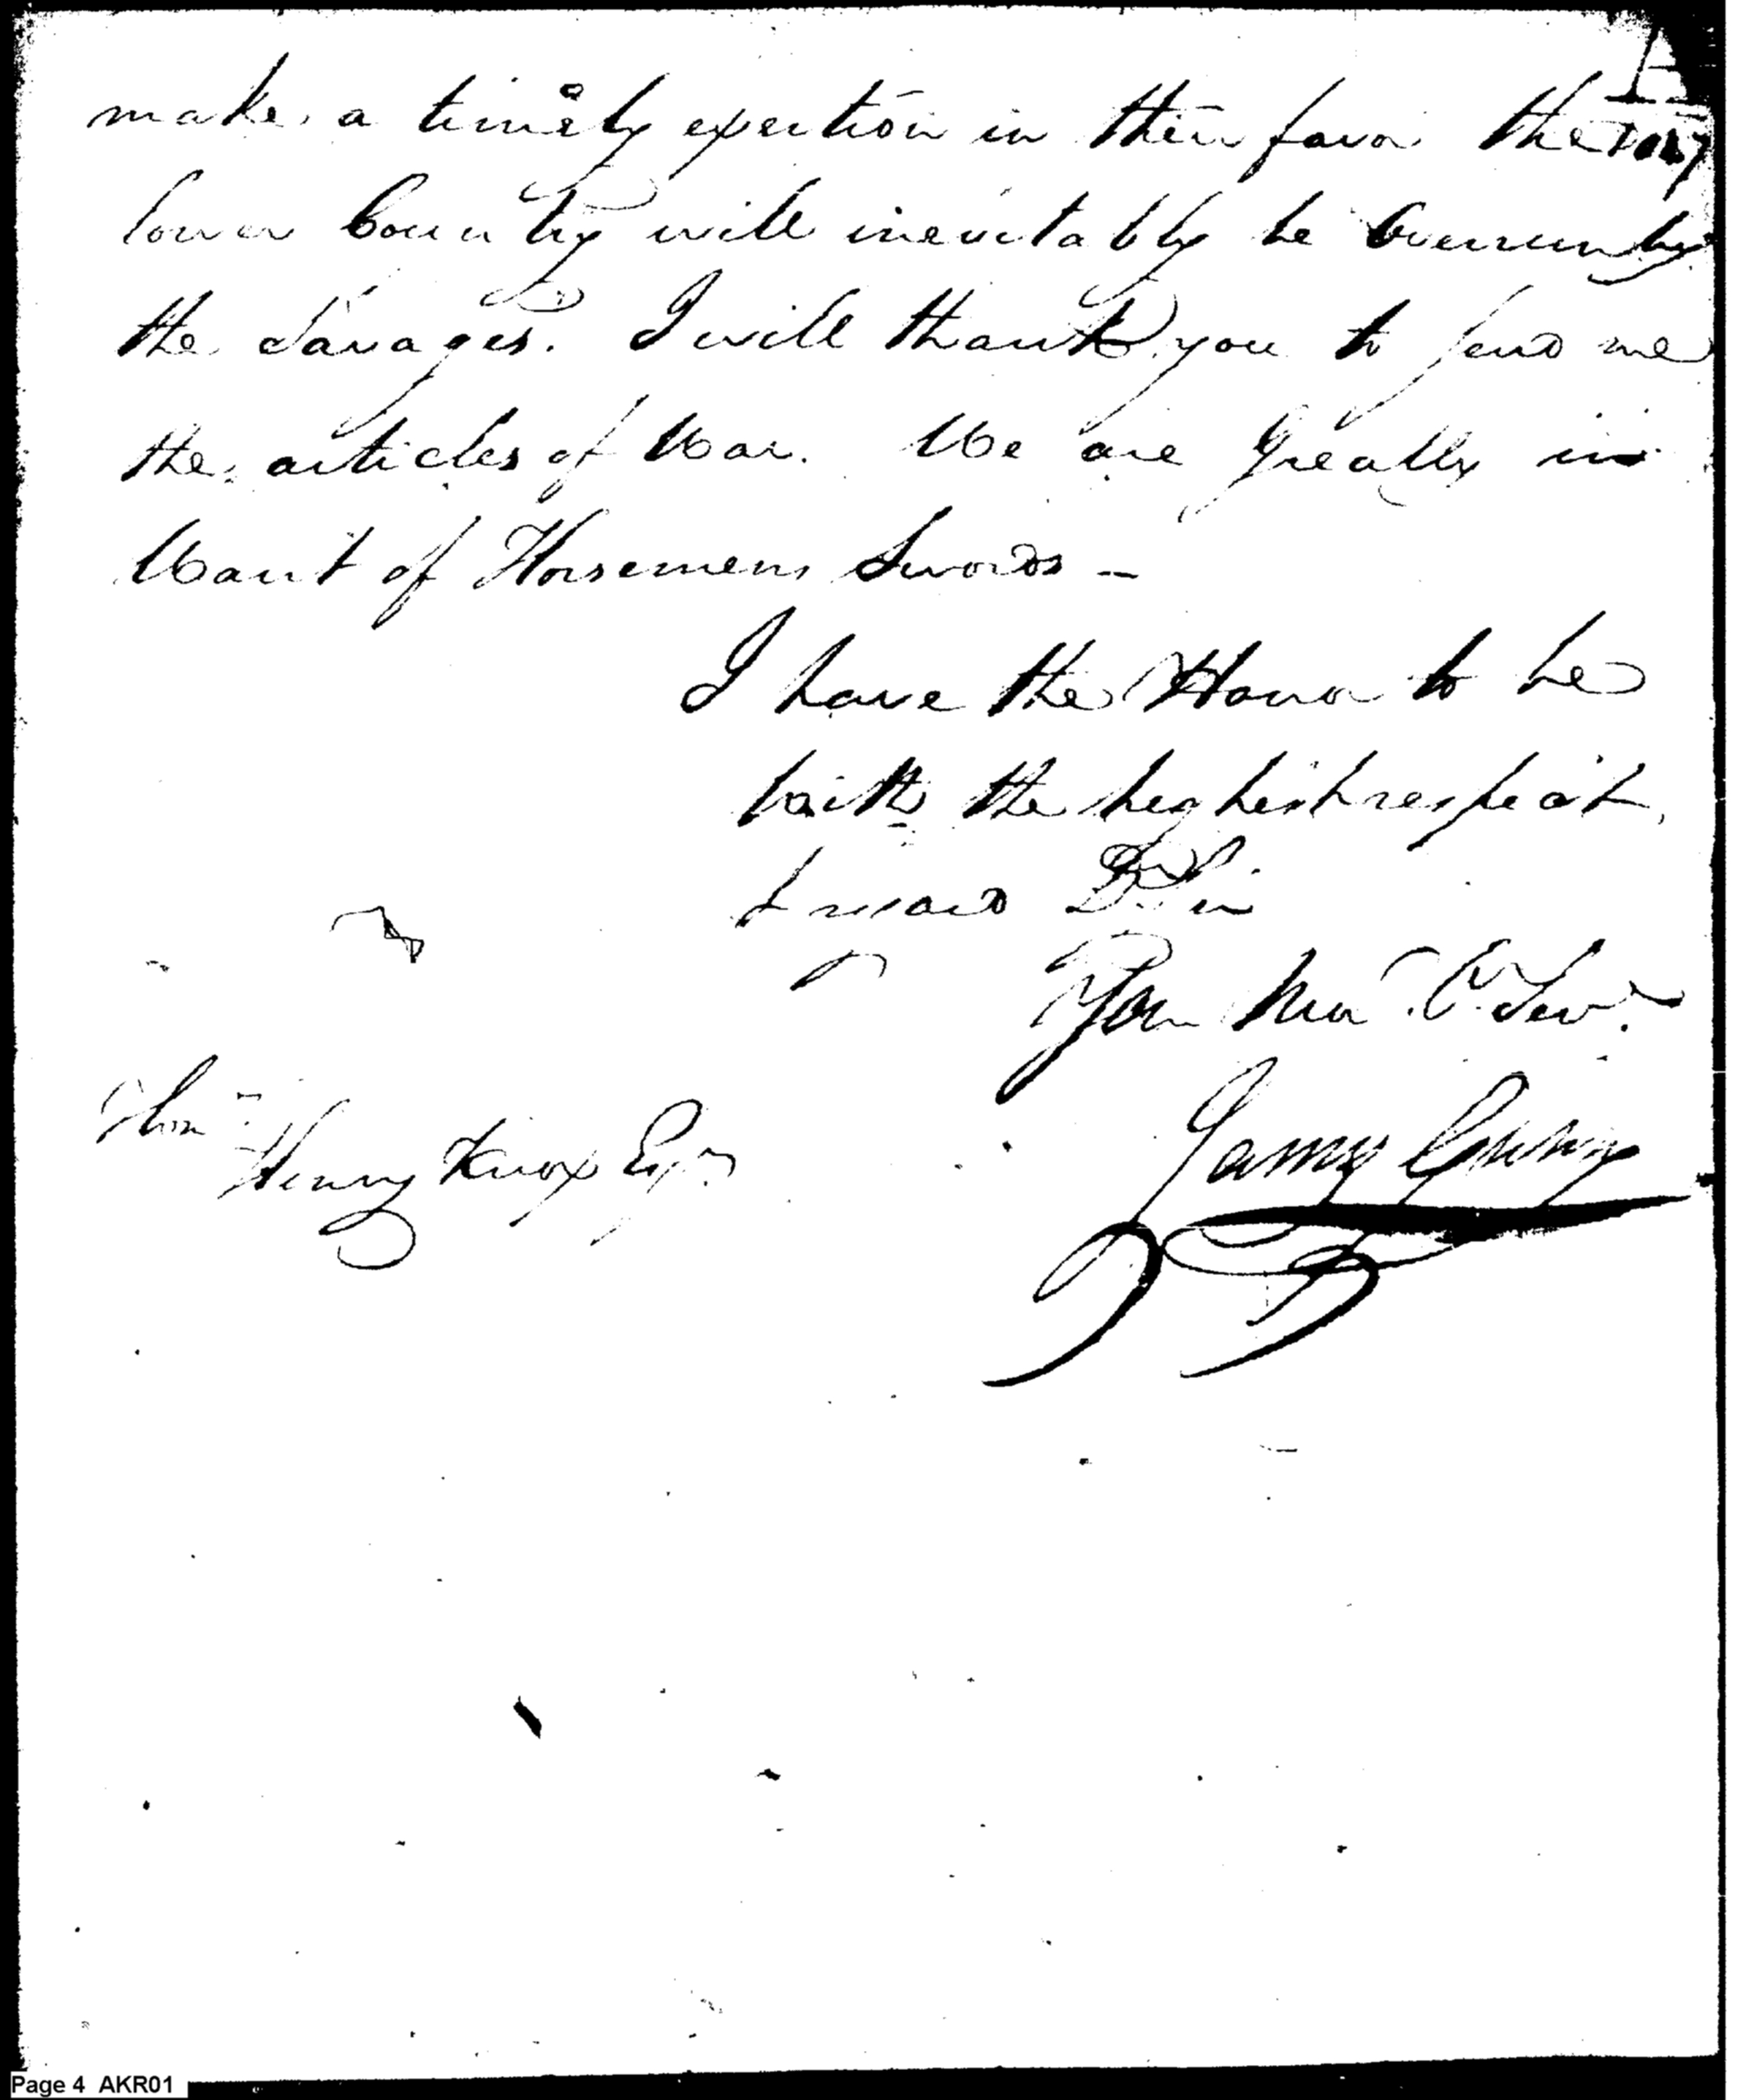 make a timely exertion in their favor the
lower Country will inevitably be Overrun by
the Savages. I will thank you to send me
the articles of War. We are Greatly in
Want of Horsemens Swords -
I have the Honor to be
with the highest respect,
& regard Dr. Sir
Your Mo. O. Servt.
Honble.
Henry Knox Esqr.
James Gunn
Page 4 AKR01